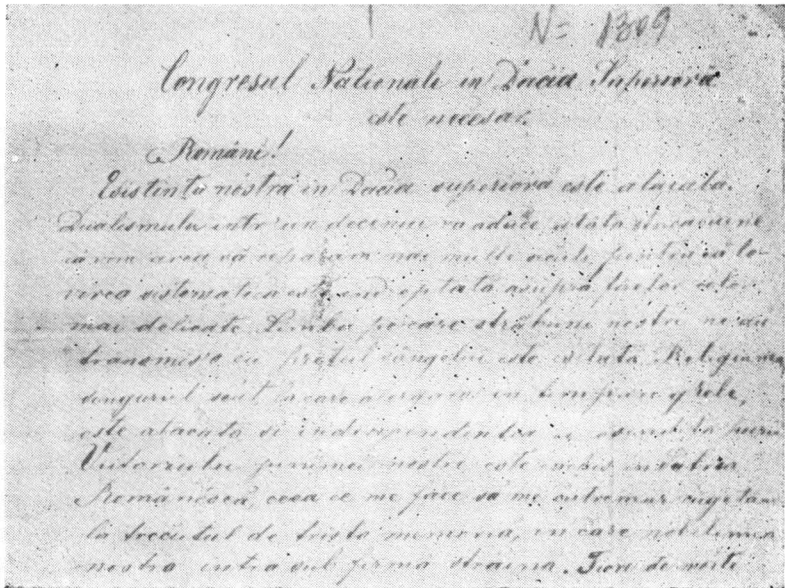 N= 1309
Congresul Nationale in Dacia Superioră
este necesar.
Români!
Esistinta nóstră in Dacia superioră este atacata.
Dualismulu intr un deceniu va aduce atâta
că vom avea să reparam mai multe pentru că lo-
virea sistematica este indreptată asupra celor
mai delicate. Limba pe care străbunii nostri ne au
transmis'o cu pretul sângelui este esilată. Religiunea
singurul scut la care alergam in timpuri grele,
este atacata si independentia
Viitoriulu junimei nostre este inchis
Românéscă, ceea ce me face sa me cutremur cugetand
la trecutul de trista memoria, in care nobilimea
nostra intra sub firmă străina. Fiori de morte